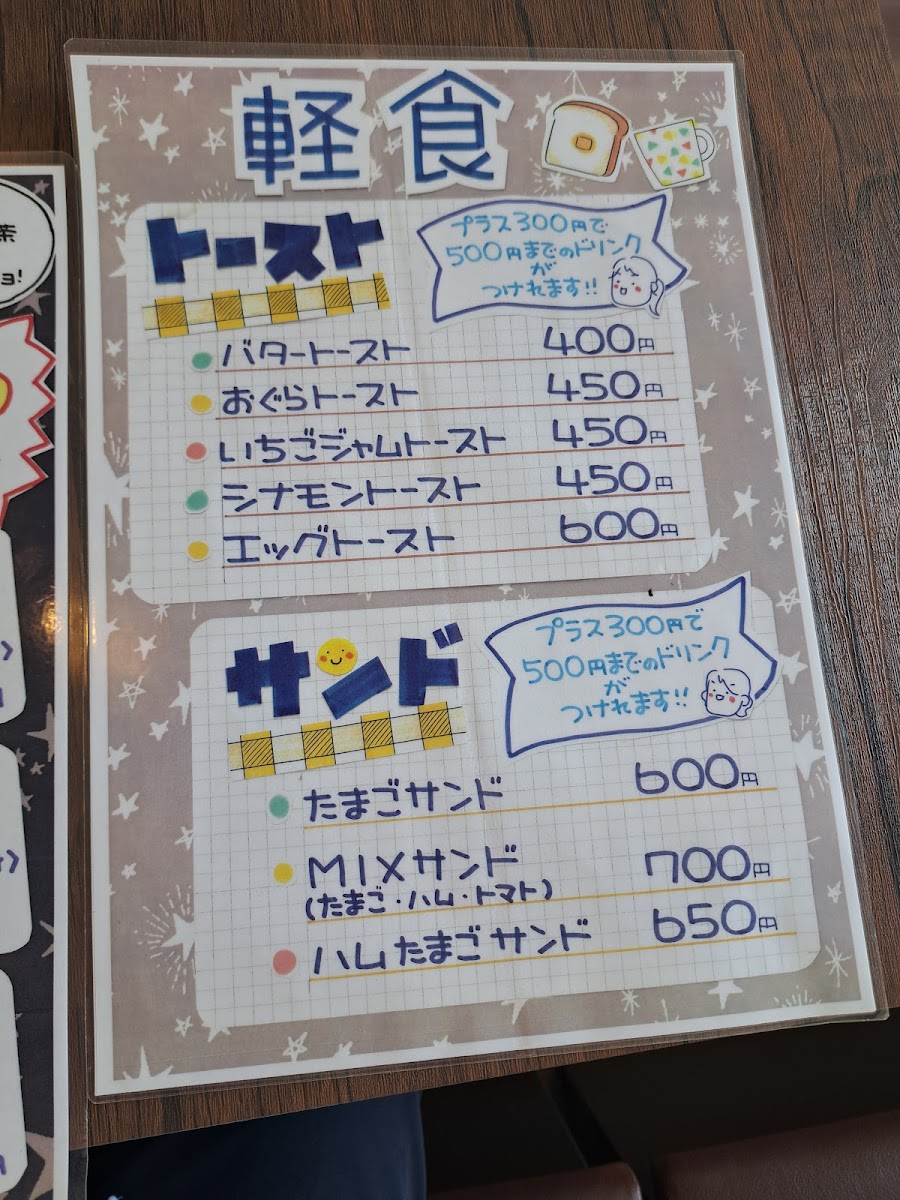 軽食
トースト
プラス300円で
500円までのドリンク
が
つけれます!!
バタートースト 400円
おぐらトースト 450円
いちごジャムトースト 450円
シナモントースト 450円
エッグトースト 600円
サンド
プラス300円で
500円までのドリンク
が
つけれます!!
たまごサンド 600円
MIXサンド 700円
(たまご・ハム・トマト)
ハムたまごサンド 650円